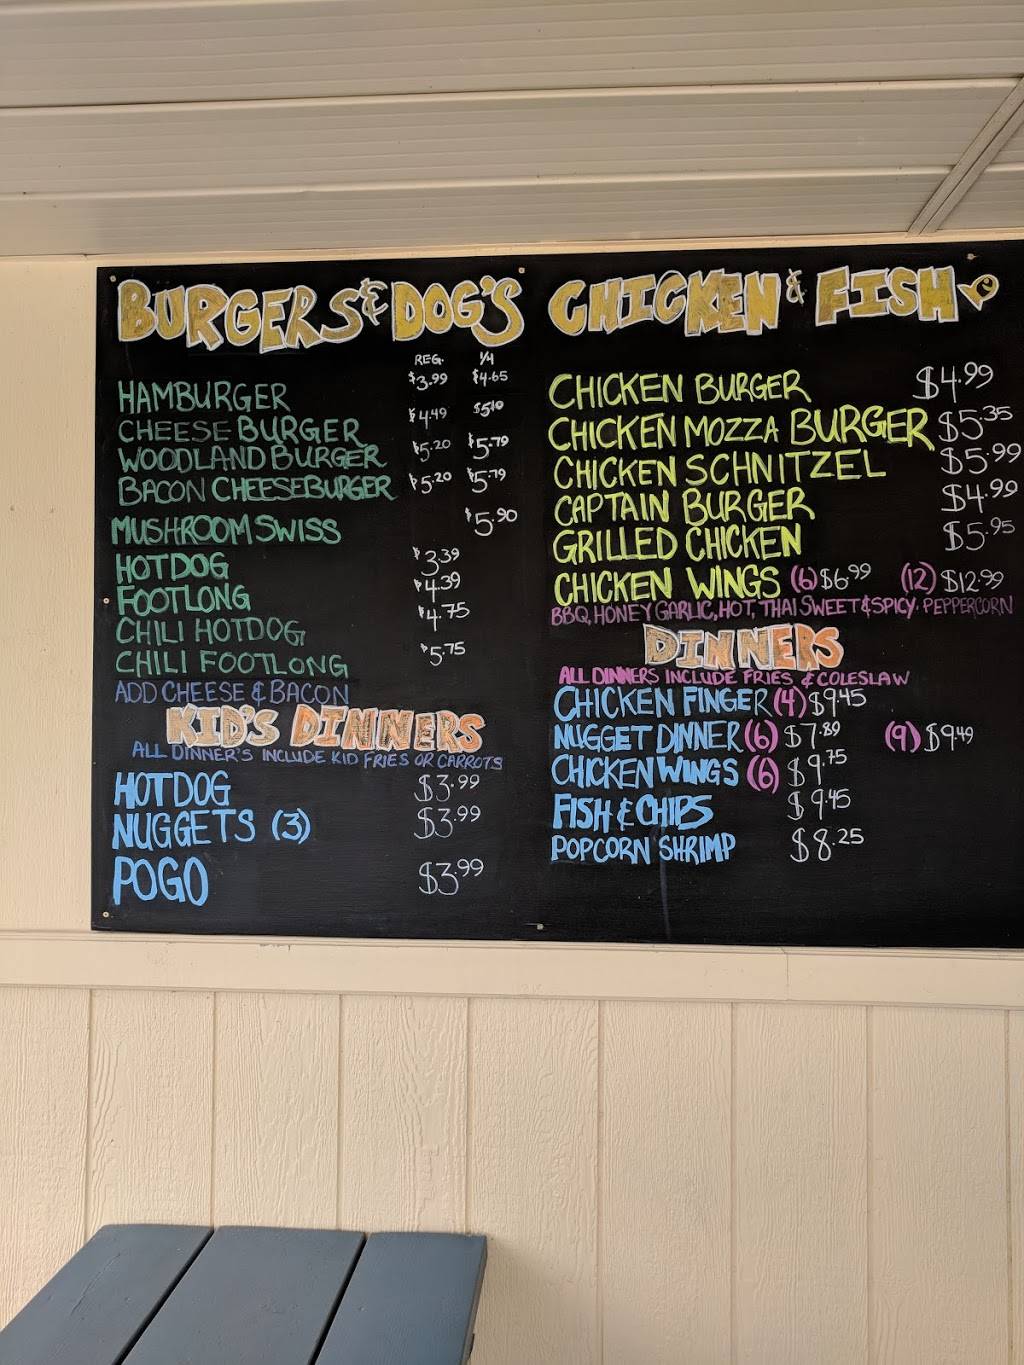 BURGERS & DOG'S
REG. 1/4
HAMBURGER $3.99 $4.65
CHEESEBURGER $4.49 $5.10
WOODLAND BURGER $5.20 $5.79
BACON CHEESEBURGER $5.20 $5.79
MUSHROOM SWISS $5.90
HOTDOG $3.39
FOOTLONG $4.39
CHILI HOTDOG $4.75
CHILI FOOTLONG $5.75
ADD CHEESE & BACON
KID'S DINNERS
ALL DINNER'S INCLUDE KID FRIES OR CARROTS
HOTDOG $3.99
NUGGETS (3) $3.99
POGO $3.99
CHICKEN & FISH
CHICKEN BURGER $4.99
CHICKEN MOZZA BURGER $5.35
CHICKEN SCHNITZEL $5.99
CAPTAIN BURGER $4.99
GRILLED CHICKEN $5.95
CHICKEN WINGS (6) $6.99 (12) $12.99
BBQ, HONEY GARLIC, HOT, THAI SWEET & SPICY, PEPPERCORN
DINNERS
ALL DINNERS INCLUDE FRIES & COLESLAW
CHICKEN FINGER (4) $9.45
NUGGET DINNER (6) $7.89 (9) $9.49
CHICKEN WINGS (6) $9.75
FISH & CHIPS $9.45
POPCORN SHRIMP $8.25